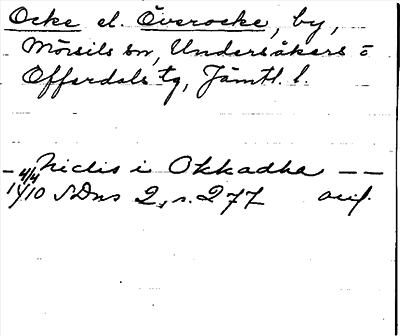 Ocke el. Överocke, by,
Mörsils sn, Undersåkers o
Offerdals tg, Jämtl. l.
– Niclis i Okkadhe – –
4/4
1410 SDns 2, s. 277 avs.